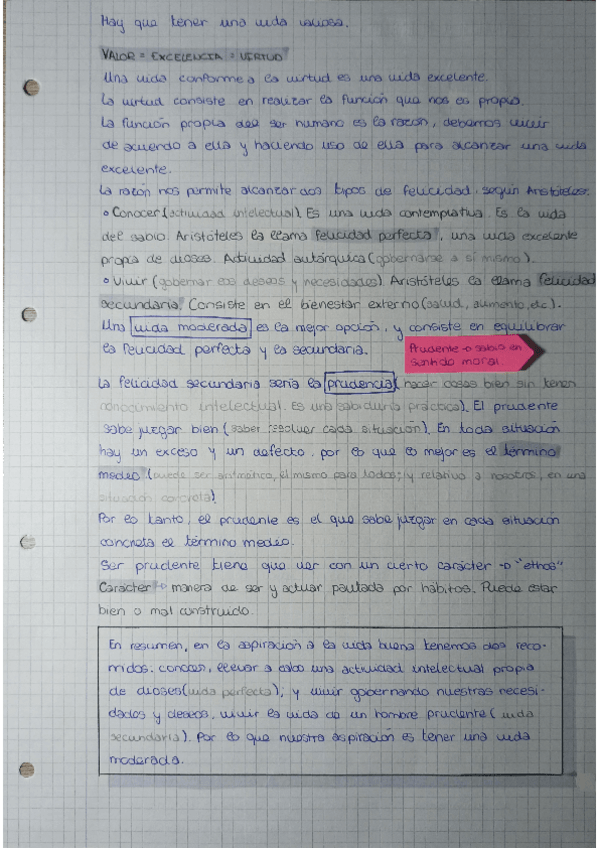 Hay que tener una vida valiosa.
VALOR = EXCELENCIA = VIRTUD
Una vida conforme a la virtud es una vida excelente.
La virtud consiste en realizar la función que nos es propia.
La función propia del ser humano es la razón, debemos vivir
de acuerdo a ella y haciendo uso de ella para alcanzar una vida
excelente.
La razón nos permite alcanzar dos tipos de felicidad, según Aristóteles:
• Conocer (actividad intelectual). Es una vida contemplativa. Es la vida
del sabio. Aristóteles la llama felicidad perfecta, una vida excelente
propia de dioses. Actividad autárquica (gobernarse a sí mismo).
• Vivir (gobernar los deseos y necesidades). Aristóteles la llama felicidad
secundaria. Consiste en el bienestar externo (salud, alimento, etc).
Una vida moderada es la mejor opción, y consiste en equilibrar
la felicidad perfecta y la secundaria.
Prudente → sabio en
sentido moral.
La felicidad secundaria sería la prudencia (hacer cosas bien sin tener
conocimiento intelectual. Es una sabiduría práctica). El prudente
sabe juzgar bien (saber resolver cada situación). En toda situación
hay un exceso y un defecto, por lo que lo mejor es el término
medio (puede ser aritmético, el mismo para todos; y relativo a nosotros, en una
situación concreta).
Por lo tanto, el prudente es el que sabe juzgar en cada situación
concreta el término medio.
Ser prudente tiene que ver con un cierto carácter → "ethos"
Carácter → manera de ser y actuar pautada por hábitos. Puede estar
bien o mal construido.
En resumen, en la aspiración a la vida buena tenemos dos reco-
rridos: conocer, llevar a cabo una actividad intelectual propia
de dioses (vida perfecta); y vivir gobernando nuestras necesi-
dades y deseos, vivir la vida de un hombre prudente (vida
secundaria). Por lo que nuestra aspiración es tener una vida
moderada.